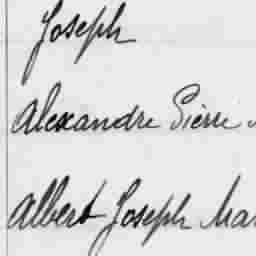 Joseph
Alexandre Pierre
Albert Joseph Mar